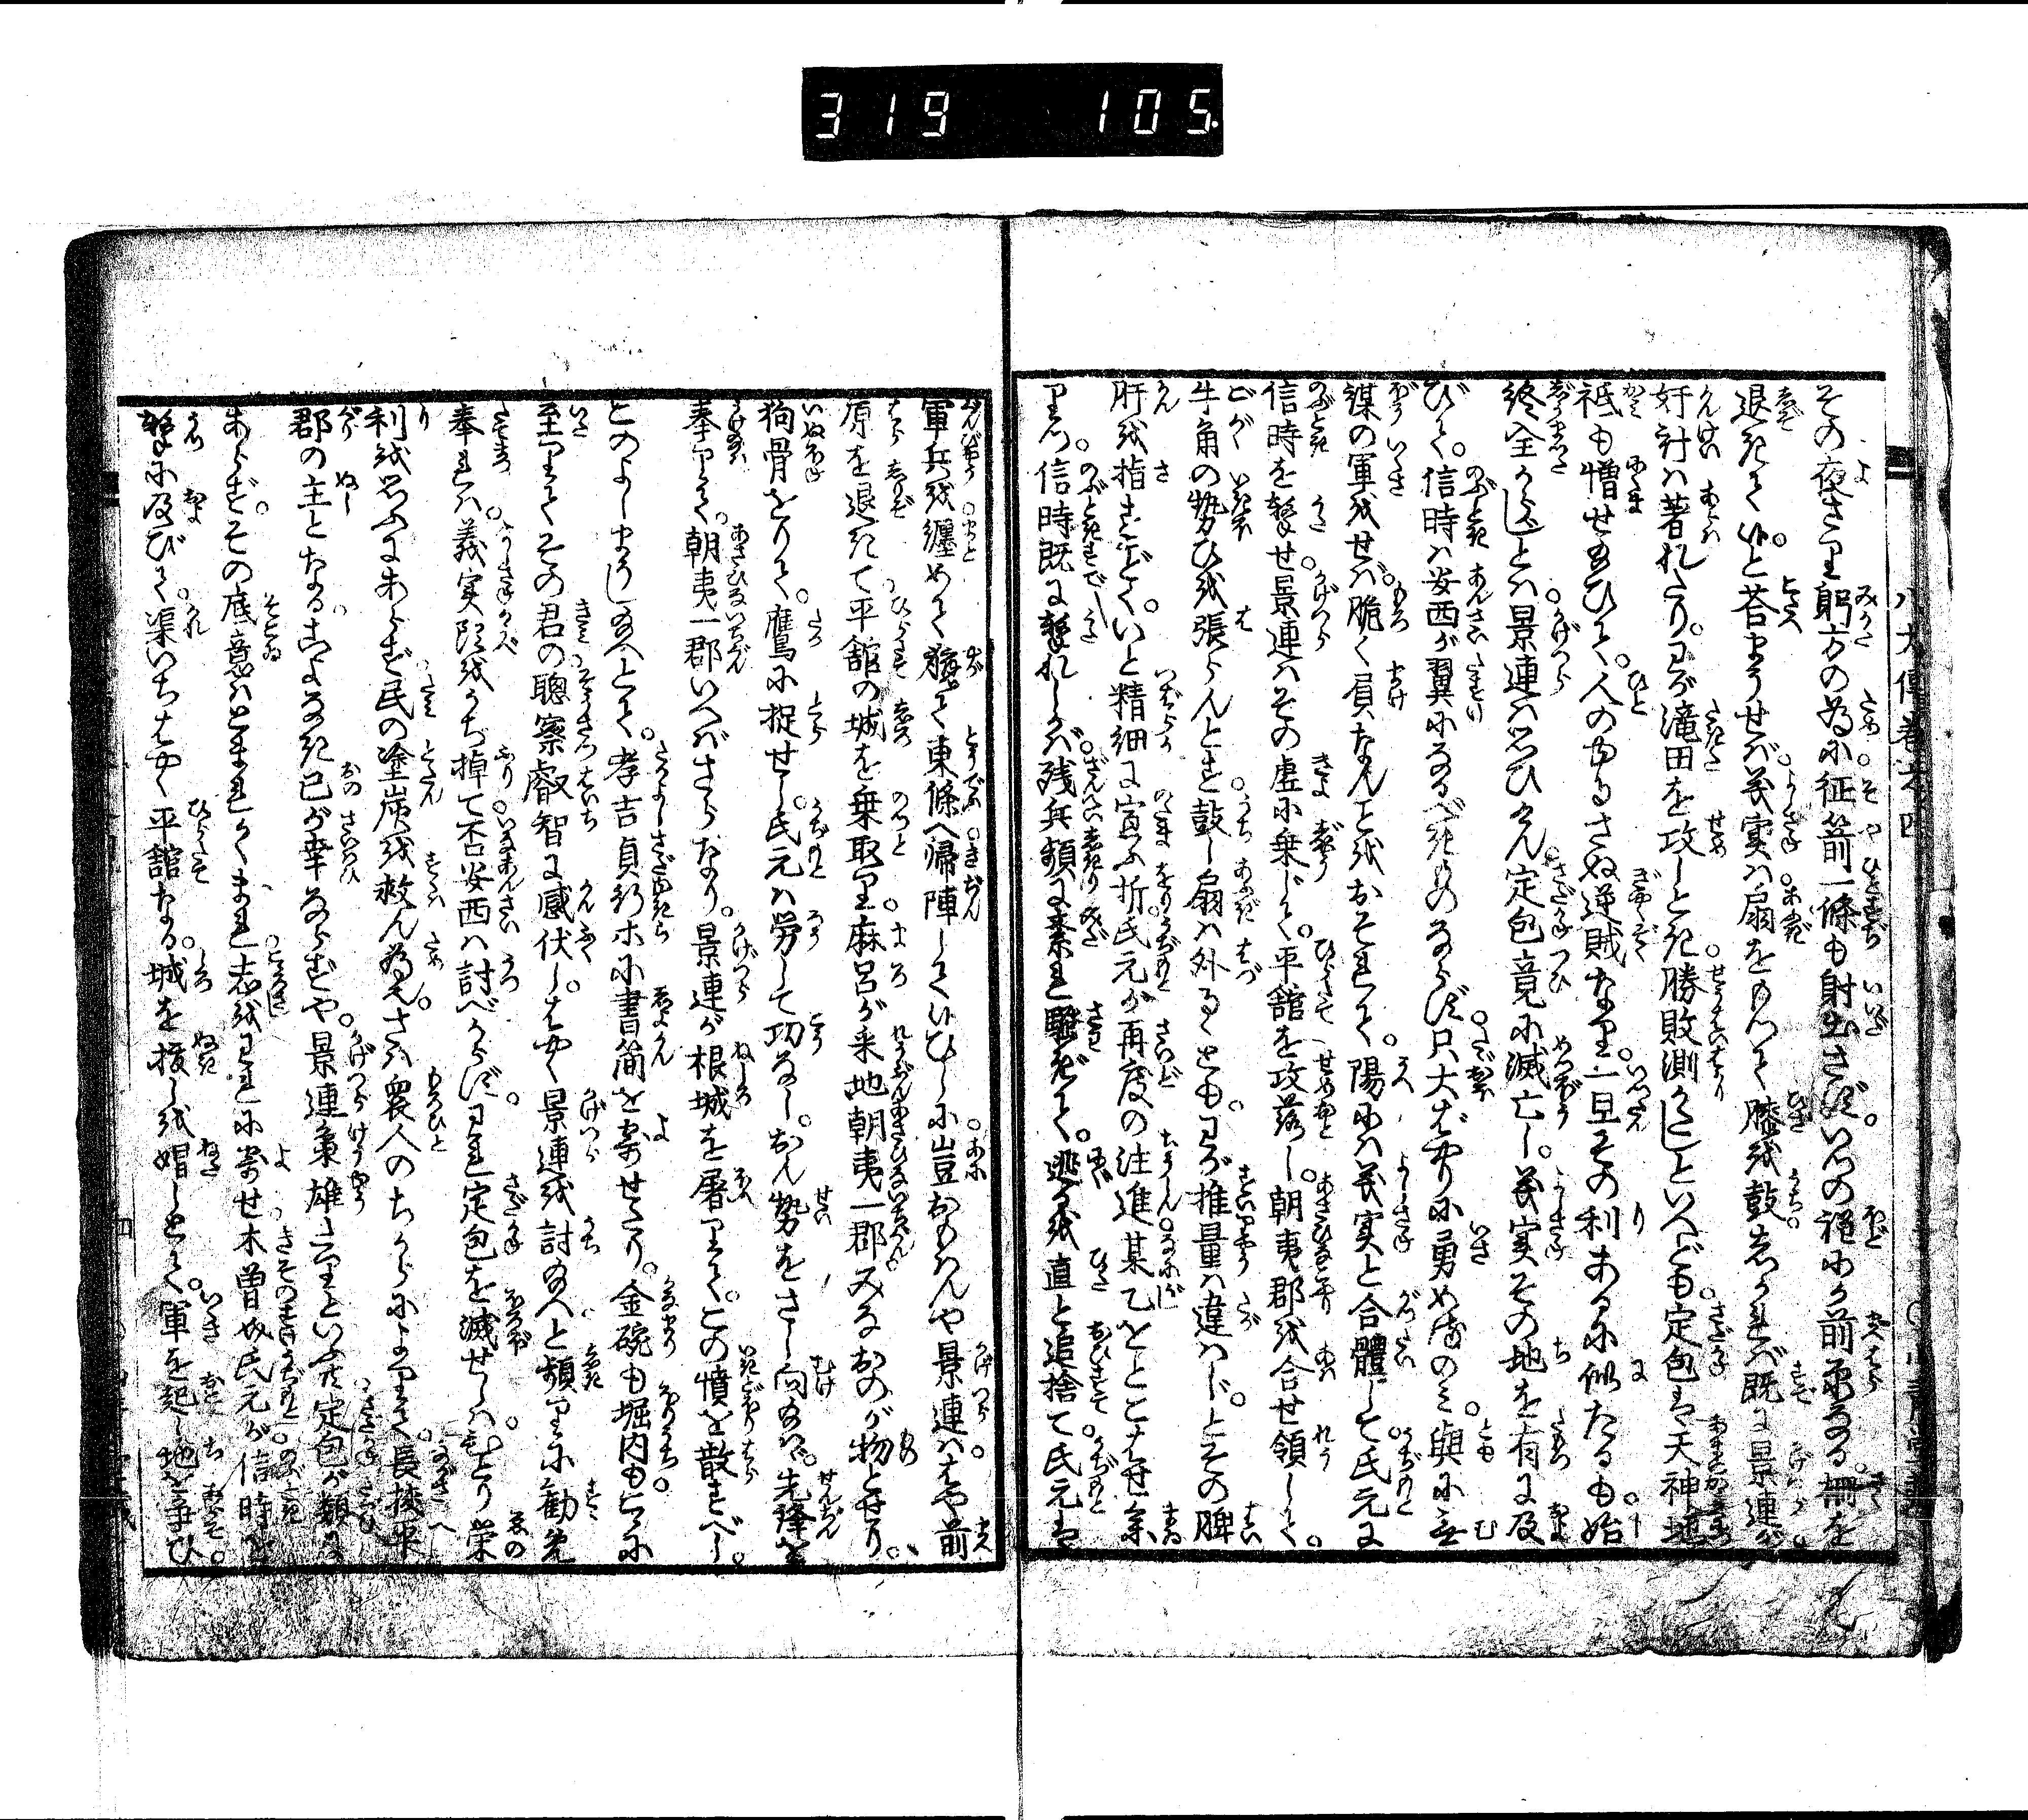 319 105
その夜さり躬方の為に征箭一條も射出さず。いつの程にか前原なる柵を
退きて候。と荅まうせば義実は扇をもつて膝を鼓しかれば既に景連が
奸計は著れたり。わが滝田を攻しとき勝敗測かたしといへども定包は天神地
祇も憎せ給ひて人のゆるさぬ逆賊なり。一旦その利あるに似たるも。始
終全からじとは景連は思ひけん定包竟に滅亡し。義実その地を有に及
びて。信時は安西が翼になるべきものならず。只大ばやりに勇めるのみ。與に
謀の軍をせば。脆く負なんとをおそれて。陽には義実と合體して氏元に
信時を撃せ。景連はその虚に乗じて。平舘を攻落し。朝夷郡を合せ領して。
牛角の勢ひを張らんとす鼓し扇は外るゝとも。わが推量は違はじ。とその脾
肝を指すごとく。いと精細に宣ふ折氏元が再度の注進某乙をとこはせ参
りつ。信時既に撃れしかば残兵頻に乗れ騒ぎて。逃るを直と追捨て氏元は
軍兵を纏めて。軈て東條へ帰陣してけひしに豈おもはんや景連は。はや前
原を退きて平舘の城を乗取り。麻呂が采地朝夷一郡みなおのが物とせり。
狗骨をりて。鷹に捉せし。氏元は労して功なし。おん勢をさし向給はゞ先鋒を
奉りて。朝夷一郡いへばさらなり。景連が根城を屠りて。この憤を散すべし。
このよしまうし給へとて。孝吉貞行ホに書簡を寄せたり。金碗も堀内も。こゝに
至りてその君の聰察叡智に感伏し。はやく景連を討給へと頻りに勸め
奉れば。義実頭をうち掉て否安西は討べからず。われ定包を滅せしは。ひとり栄
利を思ふにあらず民の塗炭を救ん為也。さは衆人のちからによりて。長挟平
郡の主となる。こよなき己が幸ならずや。景連梟雄たりといふとも定包が類に
あらず。その底意はとまれかくまれ。志をわれに寄せ木曽氏元が信時を
撃に及びて。渠いちはやく平舘なる。城を抜しを媢しとて。軍を起し地を争ひ